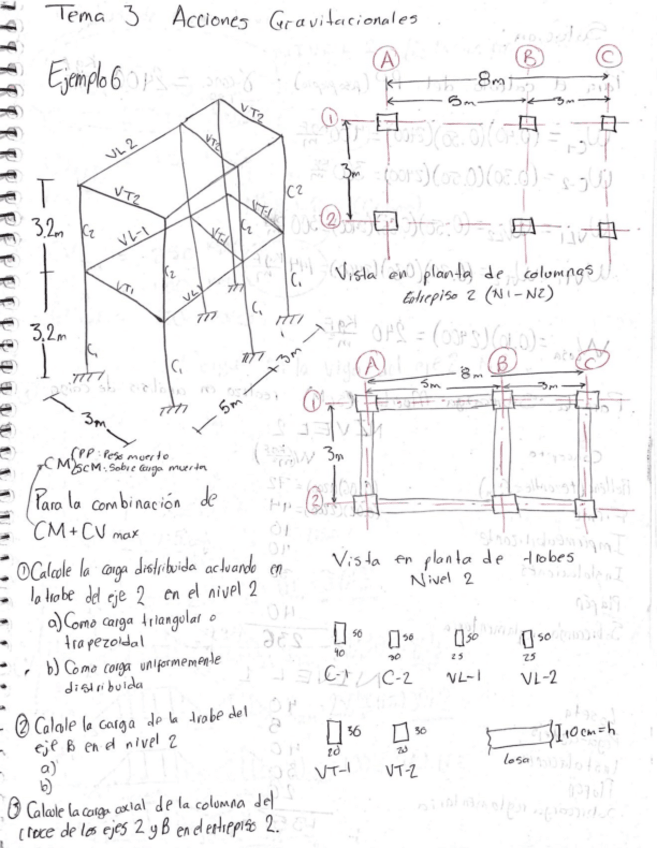 Tema 3 Acciones Gravitacionales.
Ejemplo 6
VL2
VT2
VT2
VT2
VL-1
VT-1
VT-1
VT1
VL1
C2
C2
C2
C1
C1
C1
C1
C1
3.2m
3.2m
3m
5m
3m
A B C
8m
5m 3m
1
3m
2
Vista en planta de columnas
Entrepiso 2 (N1-N2)
A B C
8m
5m 3m
1
3m
2
Vista en planta de trabes
Nivel 2
CM
PP: Peso muerto
SCM: Sobre carga muerta
Para la combinación de
CM + CV max
① Calcule la carga distribuida actuando en
la trabe del eje 2 en el nivel 2
a) Como carga triangular o
trapezoidal
b) Como carga uniformemente
distribuida
② Calcule la carga de la trabe del
eje B en el nivel 2
a)
b)
③ Calcule la carga axial de la columna del
cruce de los ejes 2 y B en el entrepiso 2.
50 50 50 50
40 30 25 25
C-1 C-2 VL-1 VL-2
30 30
20 20
VT-1 VT-2
10cm=h
losa